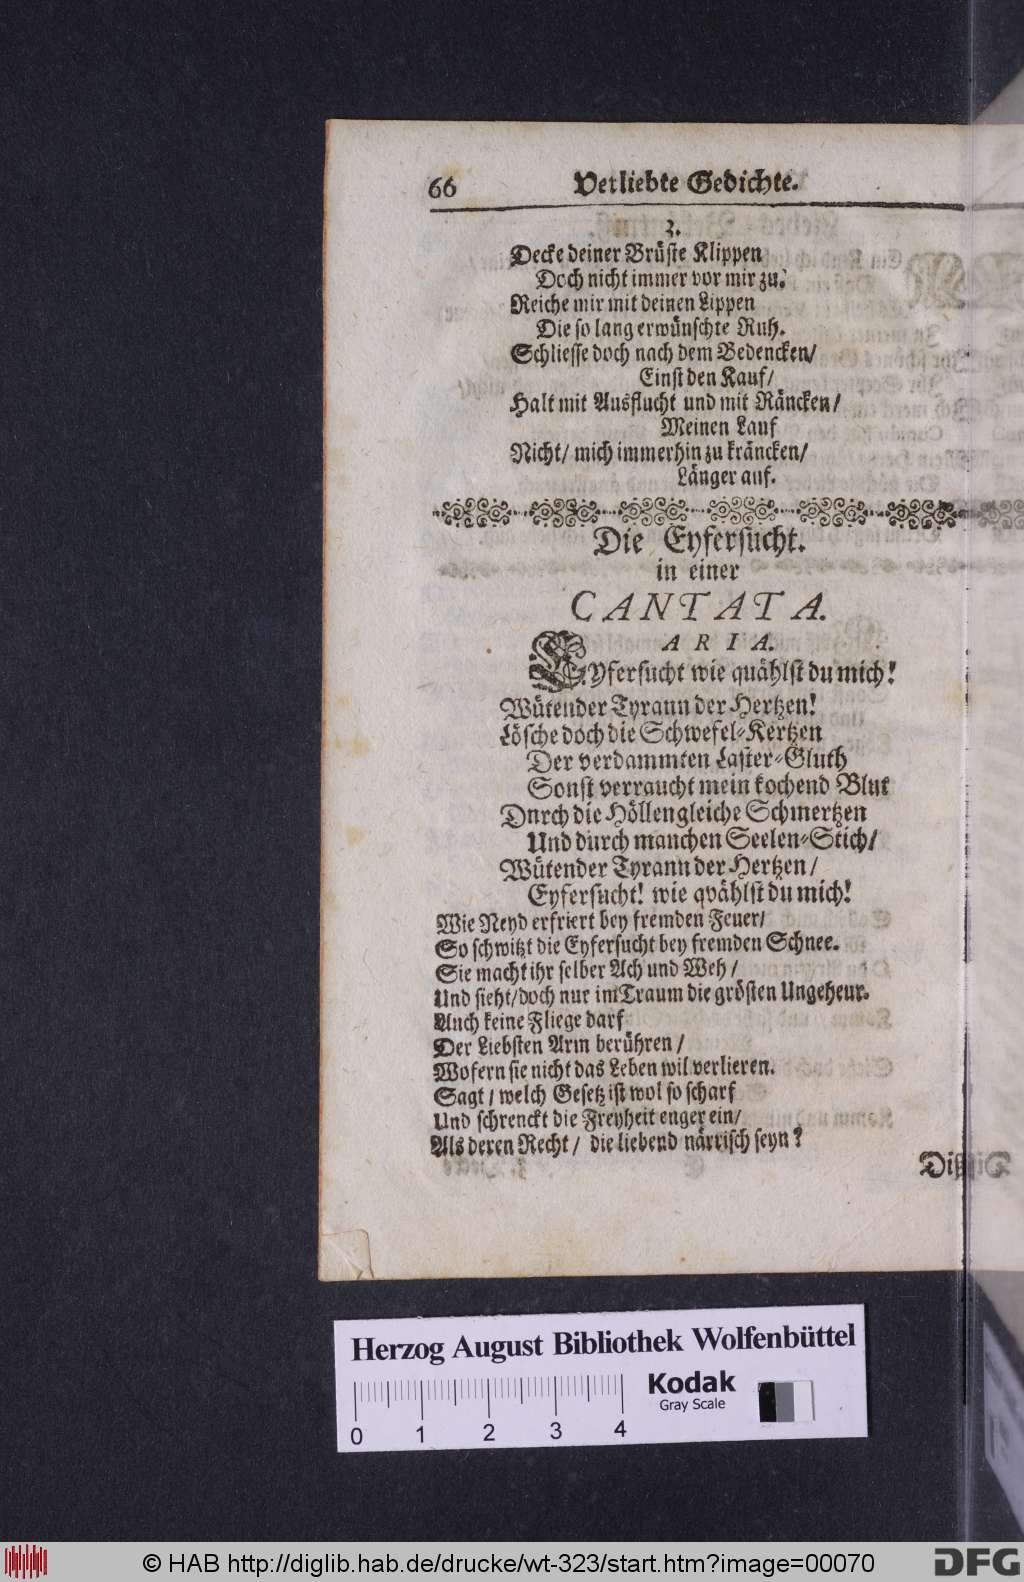 66 Verliebte Gedichte.
3.
Decke deiner Brüste Klippen
Doch nicht immer vor mir zu.
Reiche mir mit deinen Lippen
Die so lang erwünschte Ruh.
Schliesse doch nach dem Bedencken/
Einst den Kauf/
Halt mit Ausflucht und mit Räncken/
Meinen Lauf
Nicht/ mich immerhin zu kräncken/
Länger auf.
Die Eyfersucht.
in einer
CANTATA.
ARIA.
Eyfersucht wie quählst du mich!
Wütender Tyrann der Hertzen!
Lösche doch die Schwefel-Kertzen
Der verdammten Laster-Gluth
Sonst verraucht mein kochend Blut
Dnrch die Höllengleiche Schmertzen
Und durch manchen Seelen-Stich/
Wütender Tyrann der Hertzen/
Eyfersucht! wie qvählst du mich!
Wie Neyd erfriert bey fremden Feuer/
So schwitzt die Eyfersucht bey fremden Schnee.
Sie macht ihr selber Ach und Weh/
Und sieht/doch nur im Traum die grösten Ungeheur.
Auch keine Fliege darf
Der Liebsten Arm berühren/
Wofern sie nicht das Leben wil verlieren.
Sagt/ welch Gesetz ist wol so scharf
Und schrenckt die Freyheit enger ein/
Als deren Recht/ die liebend närrisch seyn?
Diß
Herzog August Bibliothek Wolfenbüttel
Kodak
Gray Scale
0 1 2 3 4
© HAB http://diglib.hab.de/drucke/wt-323/start.htm?image=00070
DFG